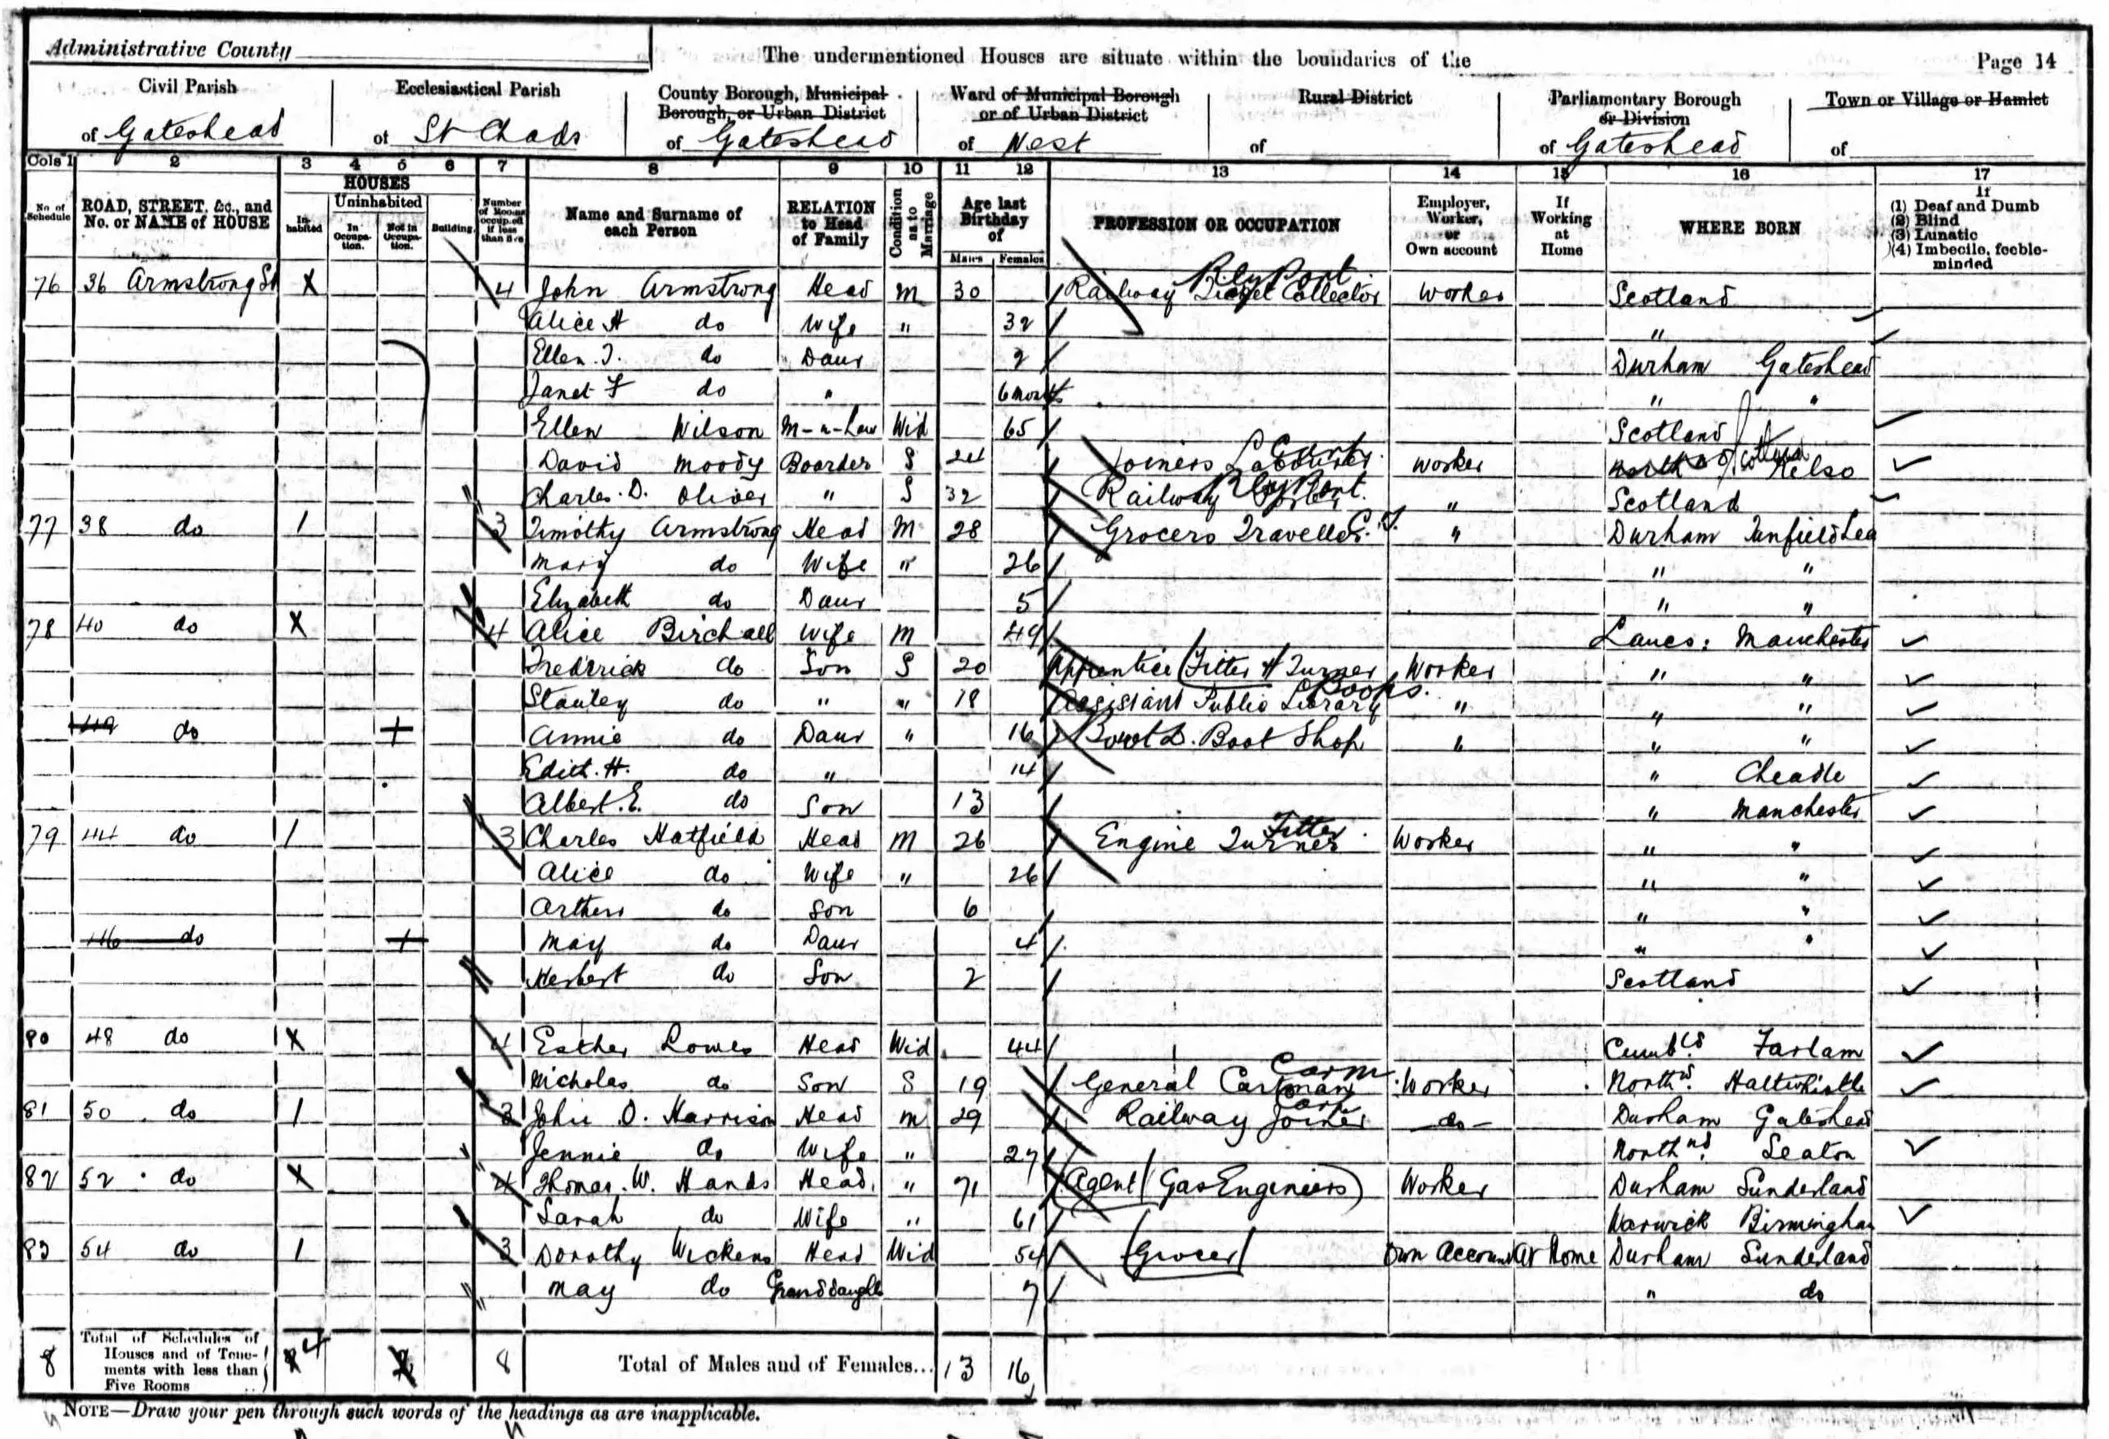 Administrative County
The undermentioned Houses are situate within the boundaries of the
Page 14
Civil Parish
of Gateshead
Ecclesiastical Parish
of St Chads
County Borough, Municipal Borough, or Urban District
of Gateshead
Ward of Municipal Borough or of Urban District
of West
Rural District
of
Parliamentary Borough or Division
of Gateshead
Town or Village or Hamlet
of
Cols 1 2 3 4 5 6 7 8 9 10 11 12 13 14 15 16 17
No. of Schedule
ROAD, STREET, &c., and No. or NAME of HOUSE
HOUSES
In-habited
Uninhabited
In Occupa-tion.
Not in Occupa-tion.
Building.
Number of Rooms occupied if less than five
Name and Surname of each Person
RELATION to Head of Family
Condition as to Marriage
Age last Birthday of
Males Females
PROFESSION OR OCCUPATION
Employer, Worker, or Own account
If Working at Home
WHERE BORN
If
(1) Deaf and Dumb
(2) Blind
(3) Lunatic
(4) Imbecile, feeble-minded
76 36 Armstrong St X 4 John Armstrong Head M 30 Railway Ticket Collector Rly Port Worker Scotland
Alice H do Wife " 32 "
Ellen. J. do Daur 2 Durham Gateshead
Janet F do " 6 mos " "
Ellen Wilson M-n-Law Wid 65 Scotland
David Moody Boarder S 24 Joiners Labourer Worker Scotland Kelso
Charles. D. Oliver " S 32 Railway Porter Rly Port. " Scotland
77 38 do 1 3 Timothy Armstrong Head M 28 Grocers Traveller C.T. " Durham Tanfield Lea
Mary do Wife " 26 " "
Elizabeth do Daur 5 " "
78 40 do X 4 Alice Birchall Wife M 49 Lancs: Manchester
Frederick do Son S 20 Apprentice (Fitter & Turner Worker " "
Stanley do " " 18 Assistant Public Library Books. " " "
42 do + Annie do Daur " 16 Boot Shop " " "
Edith. H. do " 14 " Cheadle
Albert. E. do Son 13 " Manchester
79 44 do 1 3 Charles Hatfield Head M 26 Engine Turner Fitter Worker " "
Alice do Wife " 26 " "
Arthur do Son 6 " "
46 do + May do Daur 4 " "
Herbert do Son 2 Scotland
80 48 do X 4 Esther Lowes Head Wid 44 Cumbld Farlam
Nicholas do Son S 19 General Cartman Carm Worker Northd. Haltwhistle
81 50 do 1 3 John O. Harrison Head M 29 Railway Joiner Carp -do- Durham Gateshead
Jennie do Wife " 27 Northnd. Seaton
82 52 do X 4 Thomas. W. Hands Head " 71 Agent (Gas Engineers) Worker Durham Sunderland
Sarah do Wife " 61 Warwick Birmingham
83 54 do 1 3 Dorothy Wickens Head Wid 54 Grocer Own Account At Home Durham Sunderland
May do Granddaughter 7 " do
8 Total of Schedules of Houses and of Tenements with less than Five Rooms 4 2 8 Total of Males and of Females... 13 16
NOTE—Draw your pen through such words of the headings as are inapplicable.